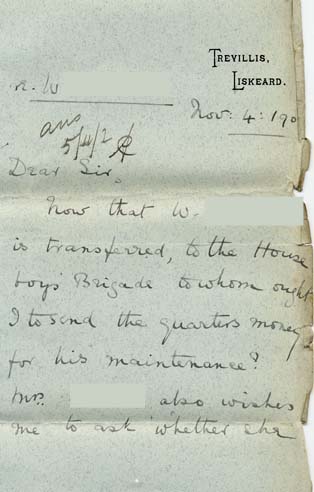 TREVILLIS,
LISKEARD.
r. W
Nov: 4: 190
ans
5/4/2
Dear Sir,
Now that W.
is transferred, to the House
boys' Brigade to whom ought
I to send the quarters money
for his maintenance?
Mrs. also wishes
me to ask whether she